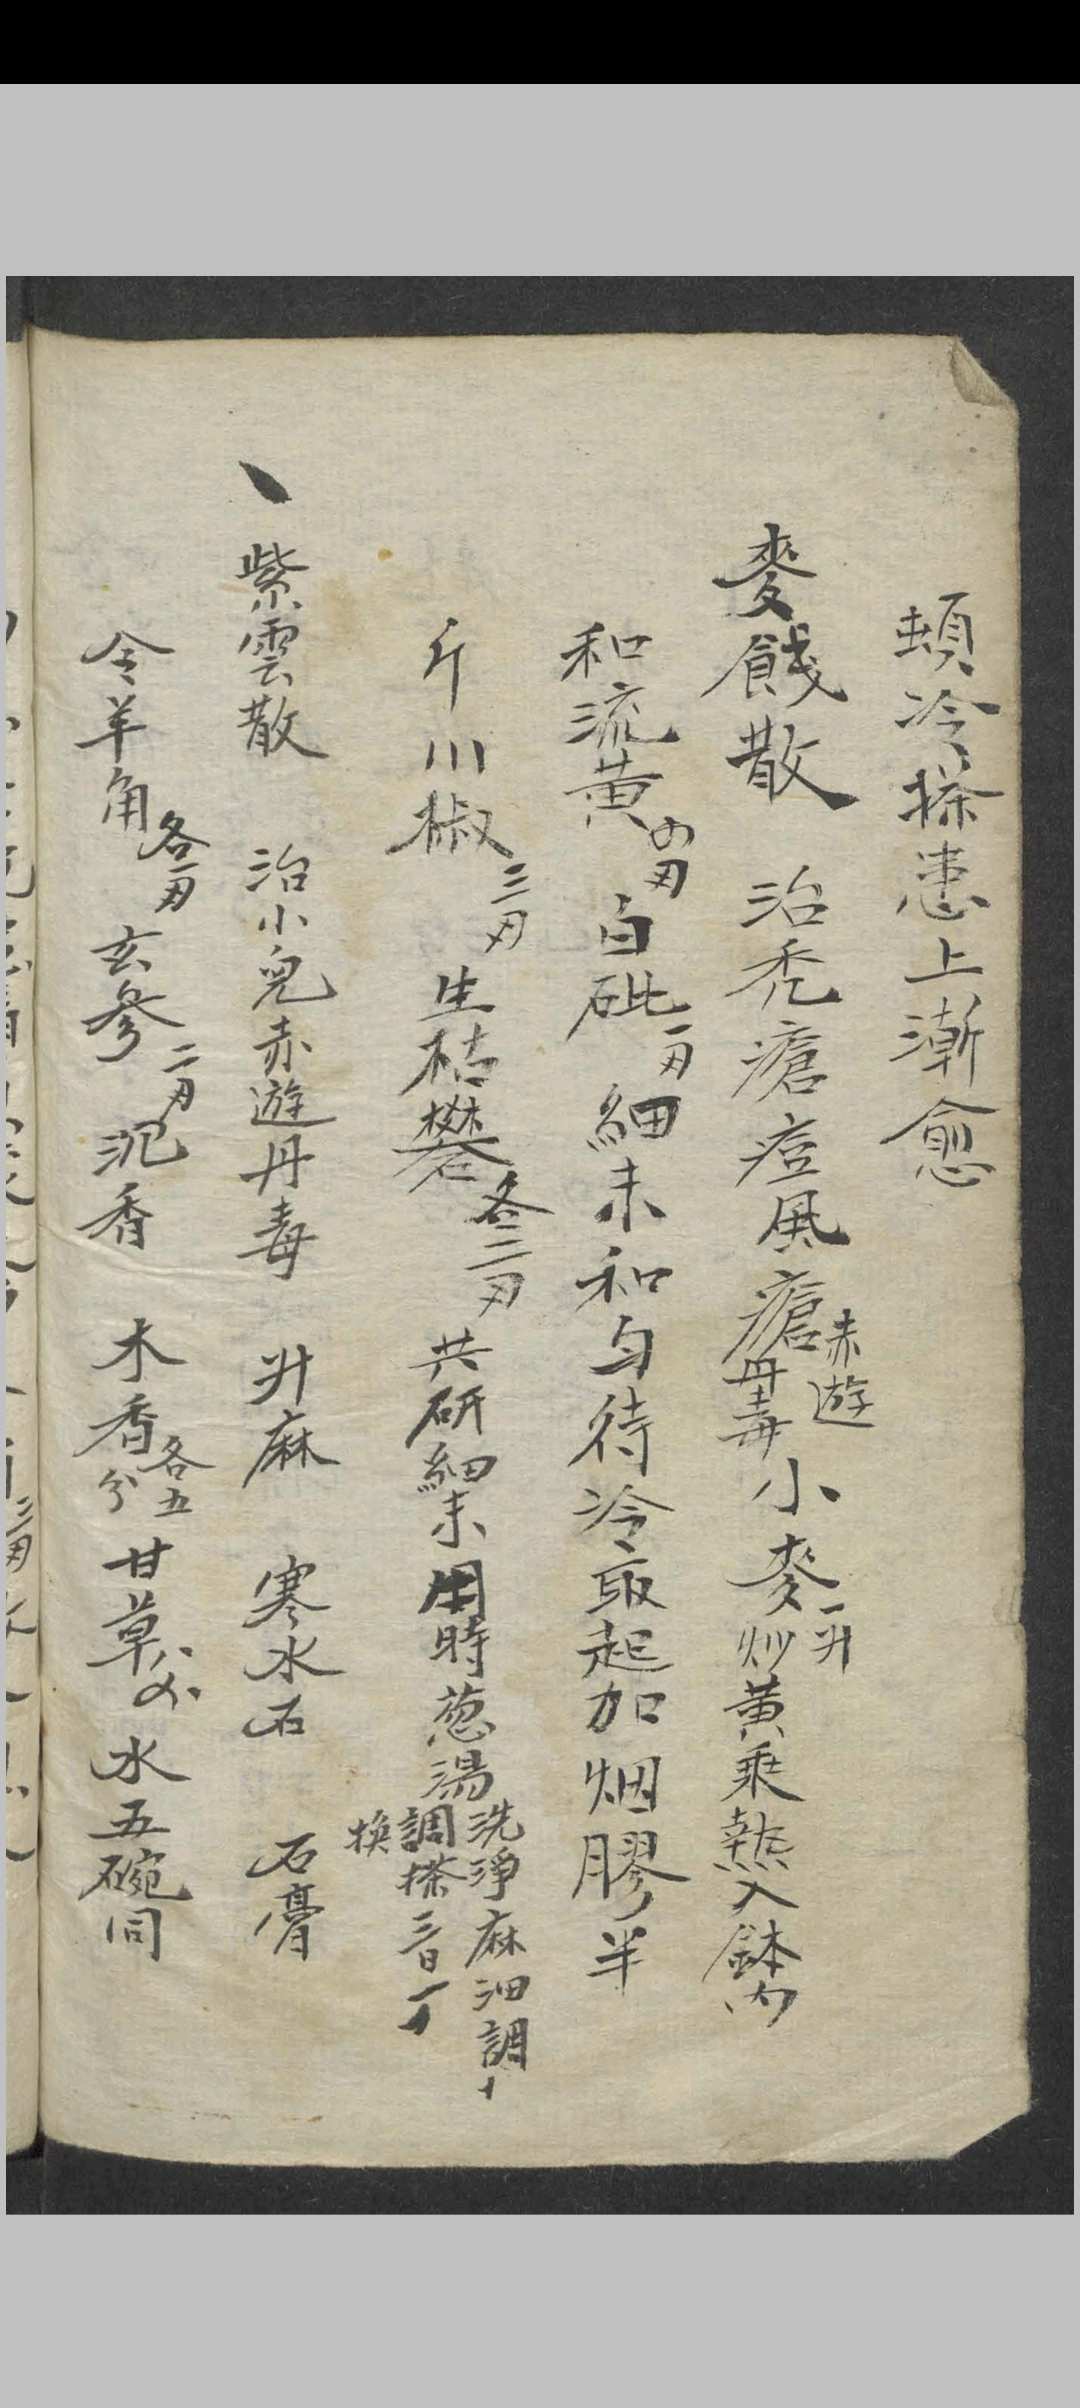 頓冷搽患上漸愈
麥餞散 治禿瘡痘風瘡赤遊丹毒小麥一升炒黃乘熱入鉢內
和流黃四刄白砒一刄細末和勻待冷取起加烟膠半
斤川椒三刄生枯礬各二刄共研細末用時葱湯洗淨麻油調搽三日一換
紫雲散 治小兒赤遊丹毒 升麻 寒水石 石膏
令羊角各一刄玄參二刄沉香 木香各五分甘草八分水五碗同